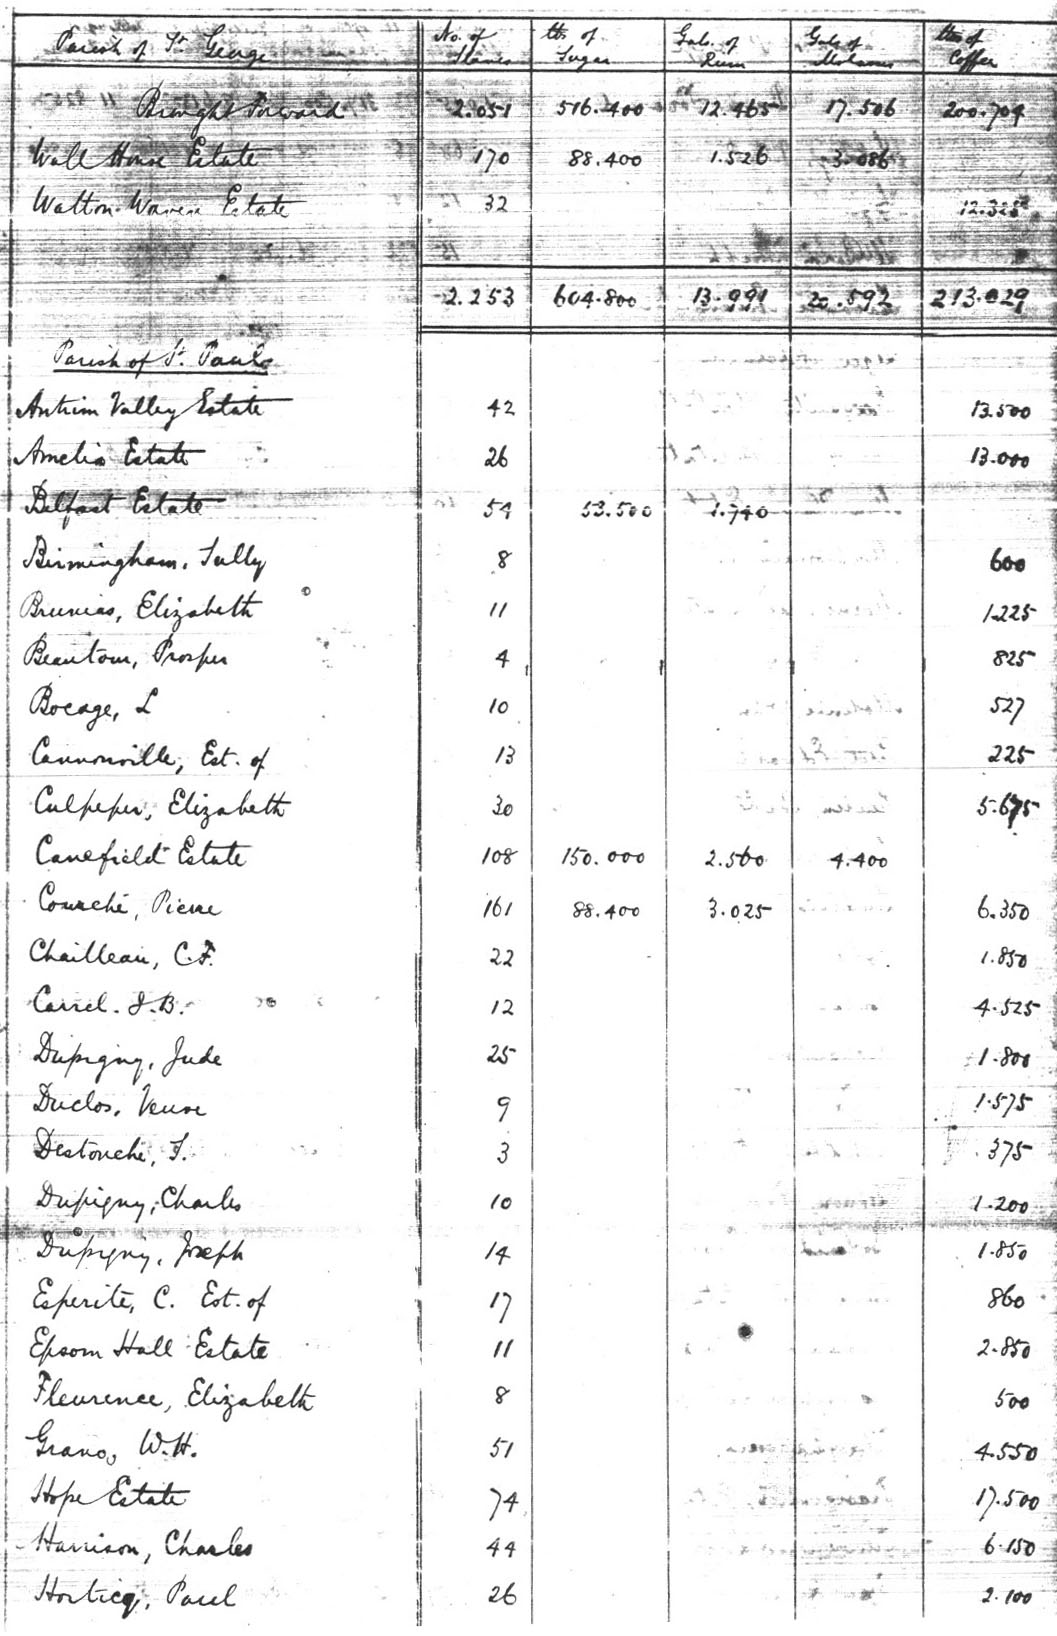 Parish of St. George No. of Slaves lbs of Sugar Gals. of Rum Gals of Molasses lbs of Coffee
Brought Forward 2.051 516.400 12.465 17.506 200.704
Wall House Estate 170 88.400 1.526 3.086
Walton Waven Estate 32 12.325
2.253 604.800 13.991 20.592 213.029
Parish of St. Paul
Antrim Valley Estate 42 13.500
Amelia Estate 26 13.000
Belfast Estate 54 53.500 1.740
Birmingham, Sully 8 600
Brunias, Elizabeth 11 1.225
Beautom, Prosper 4 825
Bocage, L 10 527
Cannonville, Est. of 13 225
Culpeper, Elizabeth 30 5.675
Canefield Estate 108 150.000 2.500 4.400
Courché, Pierre 161 88.400 3.025 6.350
Chailleau, C.F. 22 1.850
Carrel. J.B. 12 4.525
Dupigny, Jude 25 1.800
Duclos, Veuve 9 1.575
Destouche, J. 3 375
Dupigny, Charles 10 1.200
Dupigny, Joseph 14 1.850
Esperite, C. Est. of 17 860
Epsom Hall Estate 11 2.850
Fleurence, Elizabeth 8 500
Grano, W.H. 51 4.550
Hope Estate 74 17.500
Harrison, Charles 44 6.150
Horticq, Paul 26 2.100